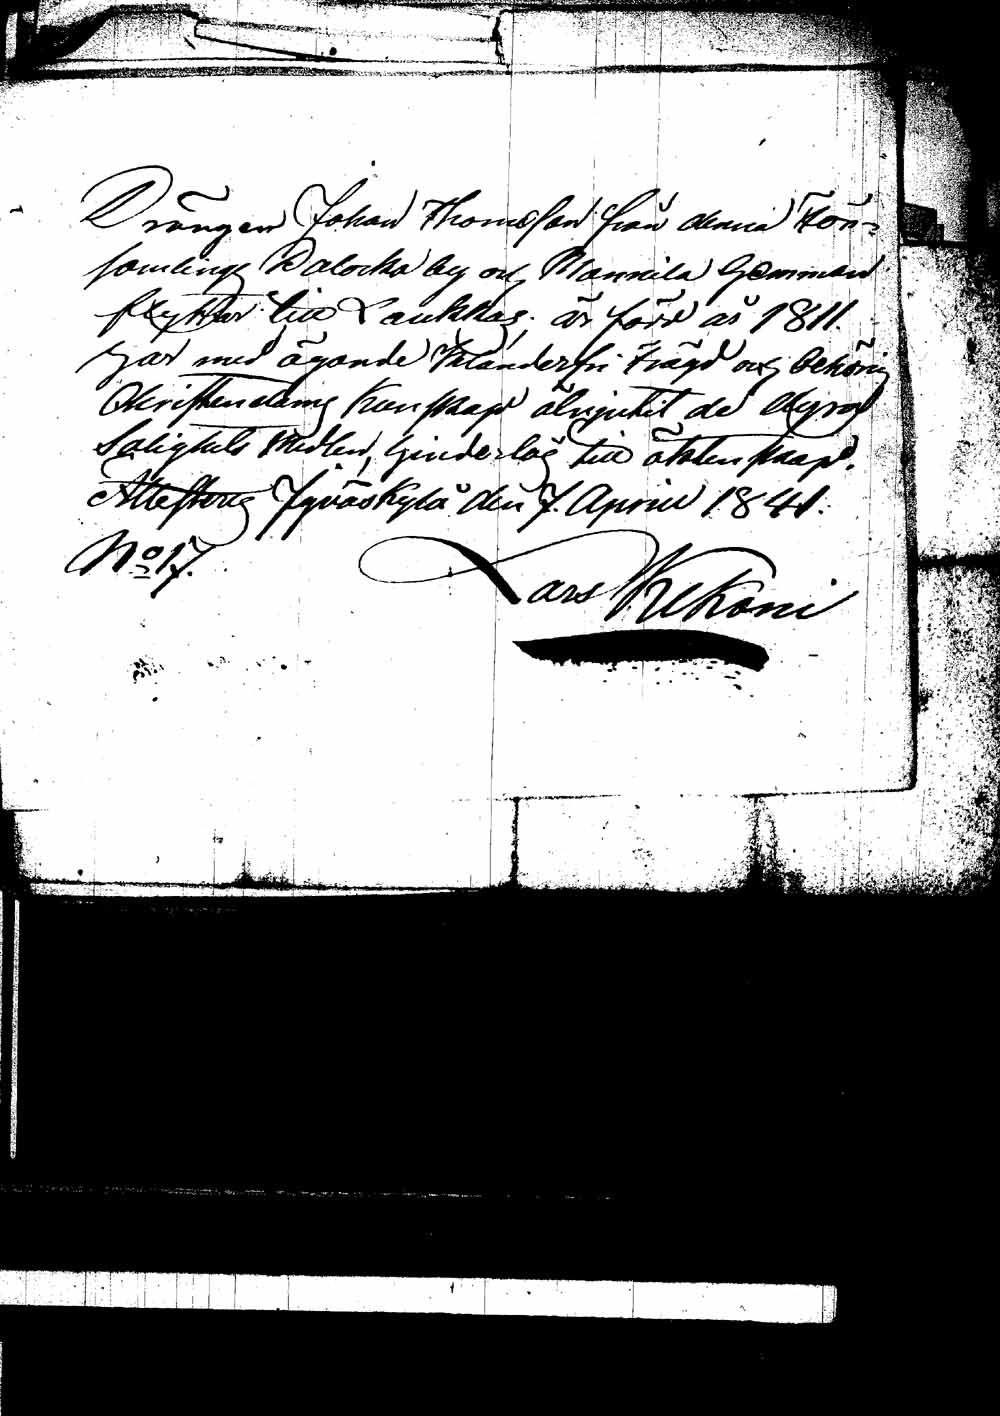 Drängen Johan Thomasson från denna För=
samlings Palocka by och Mannila Hemman
flyttar till Laukkas, är född år 1811.
har med ägande oklanderlig Frägd och behörig
Christendoms Kunskap åtnjutit de dyra
Salighets Medlen, hinderlös till äktenskap.
Attesteras Jyväskylä den 7. Aprill 1841.
No 17.
Lars Kekoni